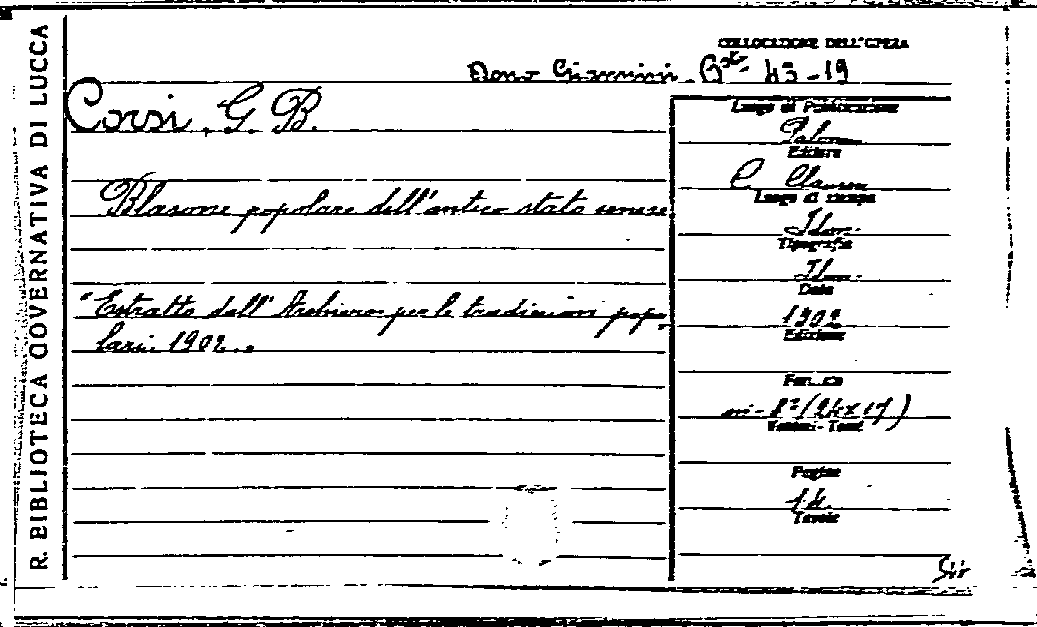 R. BIBLIOTECA GOVERNATIVA DI LUCCA
COLLOCAZIONE DELL'OPERA
Dono Giannini - 43-19
Corsi, G. B.
Blasone popolare dell'antico stato senese
"Estratto dall'Archivio per le tradizioni popo-
lari. 1902.
Luogo di Pubblicazione
Palermo
Editore
C. Clausen
Luogo di stampa
Idem
Tipografia
Idem
Data
1902
Edizione
Formato
in-8º (24x17)
Volumi - Tomi
Pagine
14.
Tavole